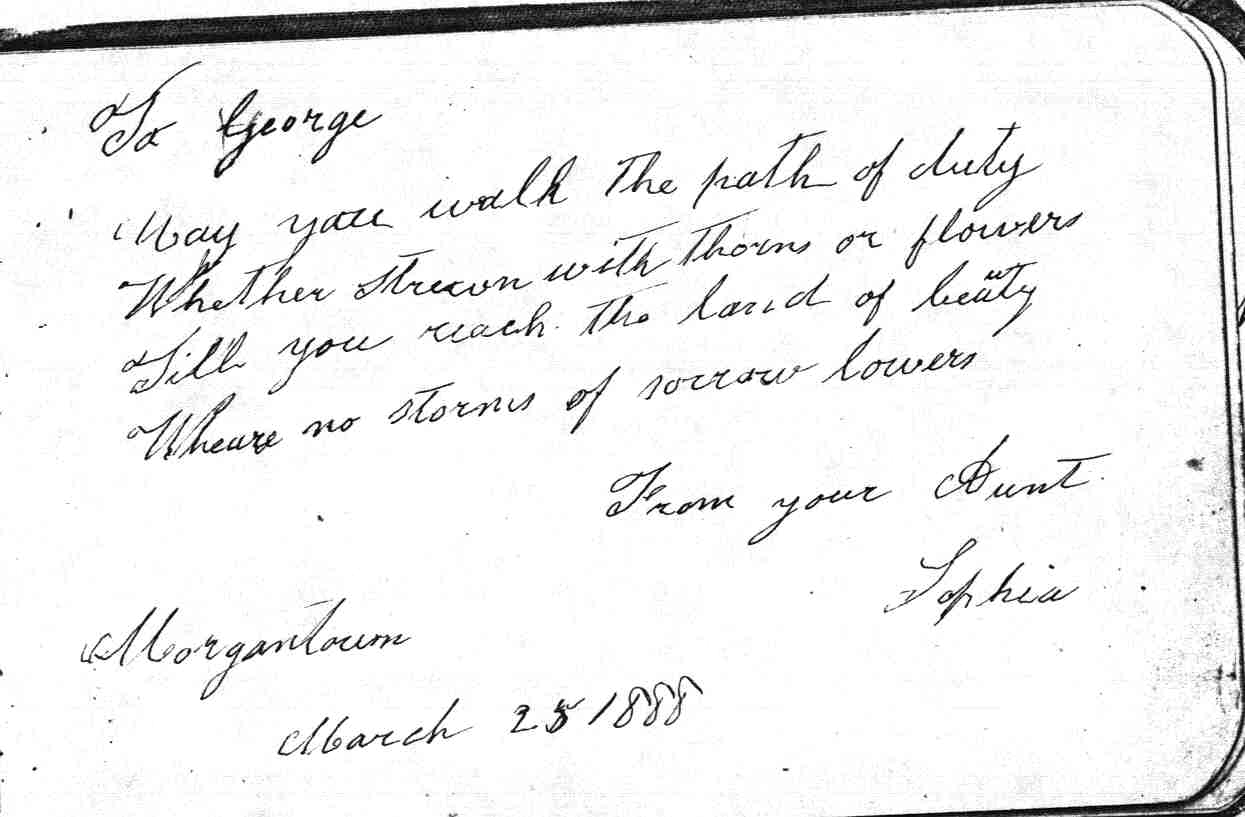 To George
May you walk the path of duty
Whether strewn with thorns or flowers
Till you reach the land of beauty
Wheare no storms of sorrow lowers
From your Aunt
Sophia
Morgantown
March 25 1888